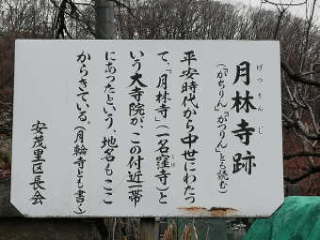 月林寺跡
げつりんじ
（「がちりん」「がつりん」とも読む）
平安時代から中世にわたっ
て、「月林寺（一名窪寺）と
くぼ
いう大寺院が、この付近一帯
にあったという、地名もここ
からきている。（月輪寺とも書く）
安茂里区長会